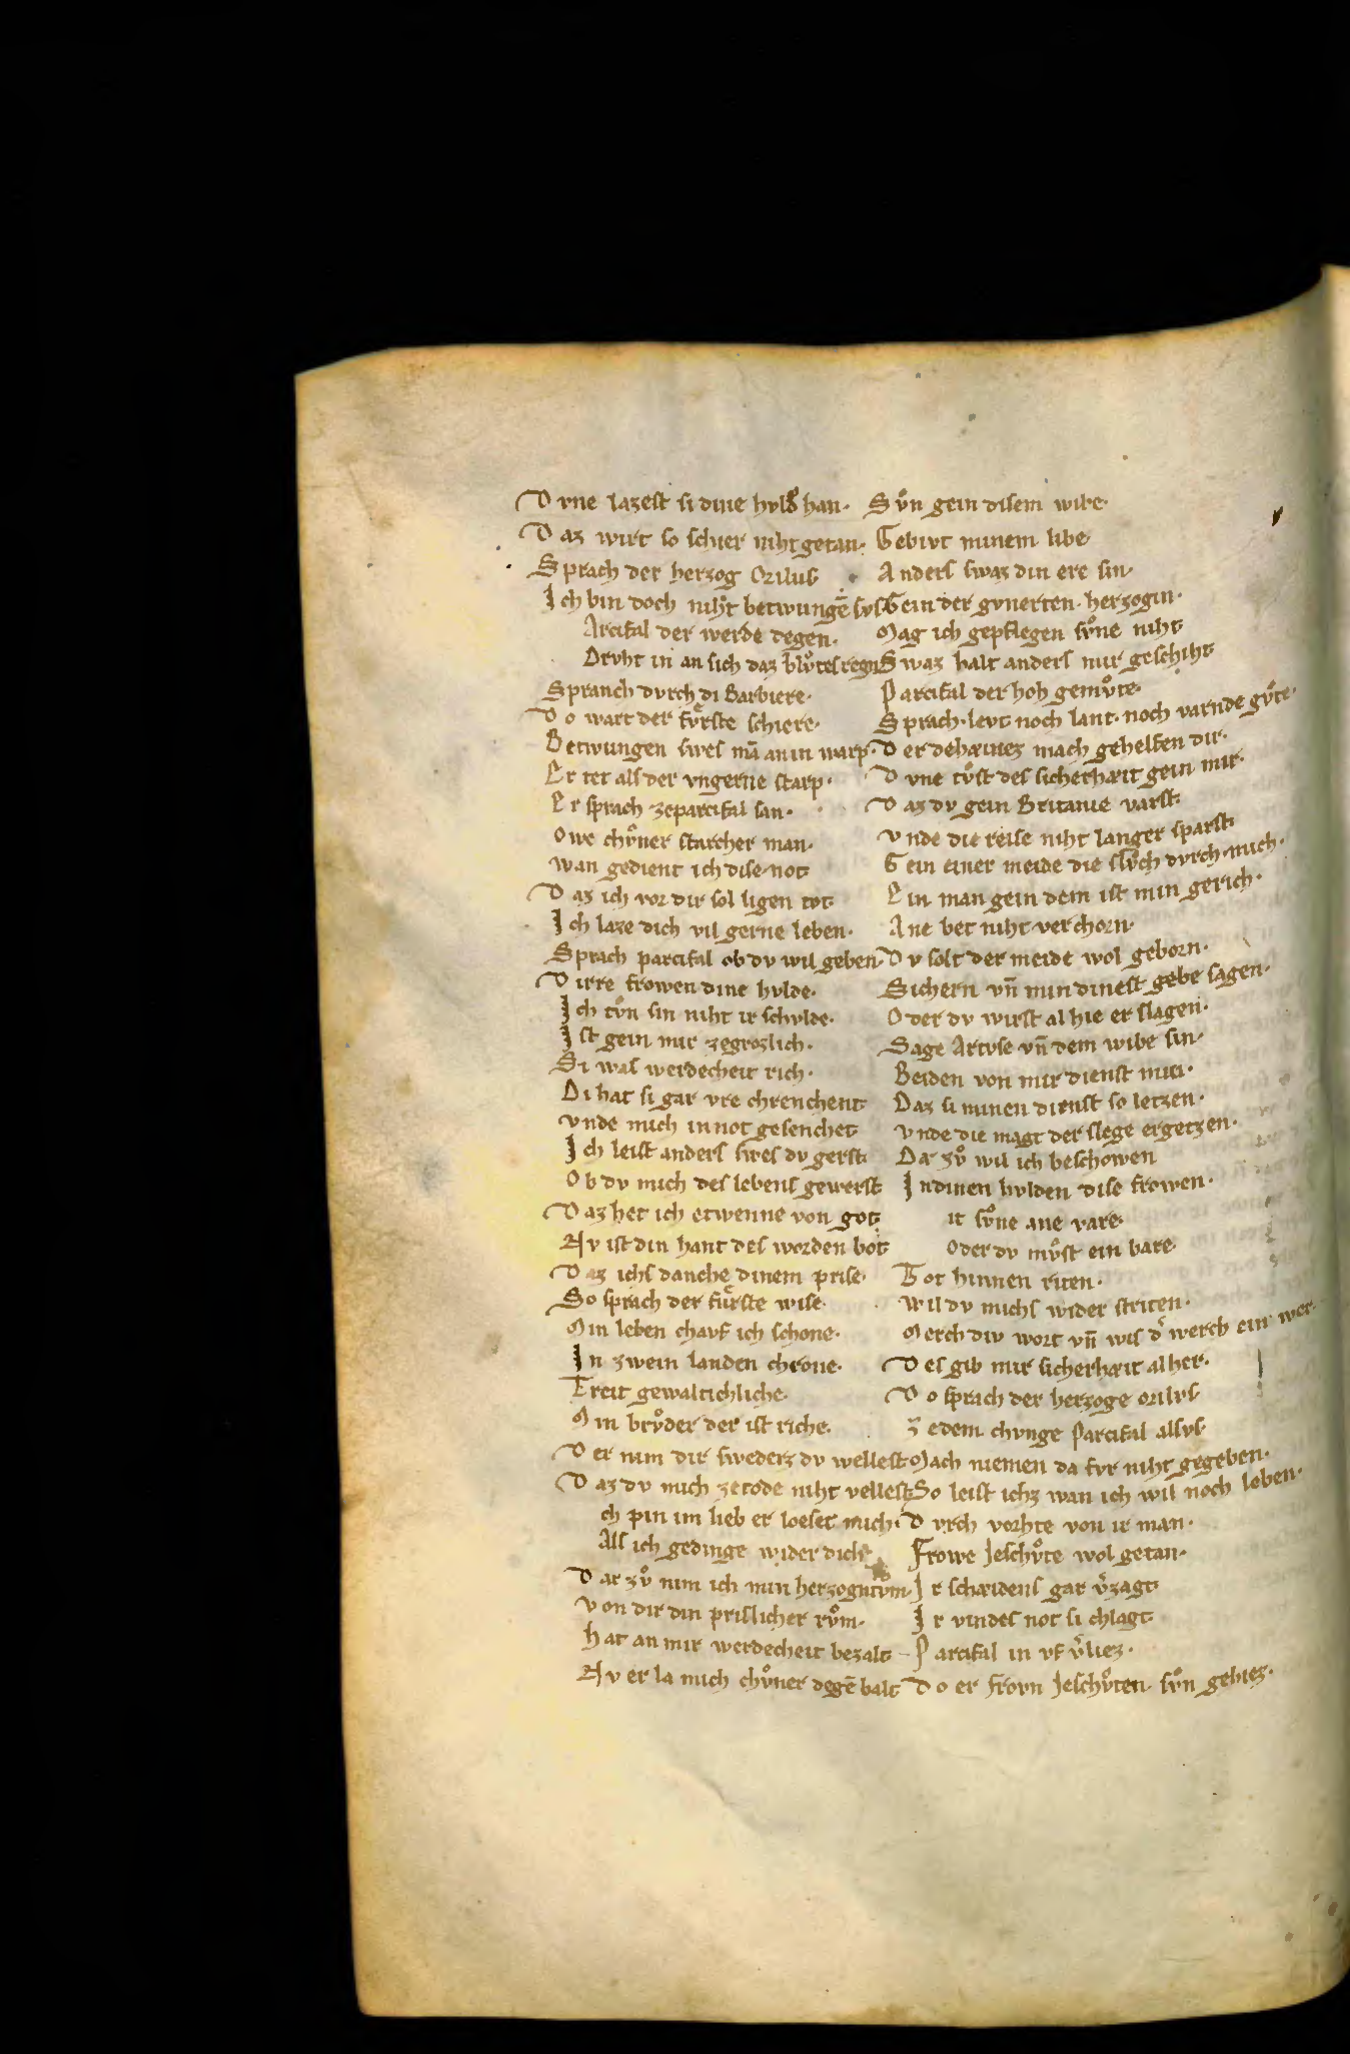 D vne lazest si dine hvlde han·
D az wirt so schier niht getan·
Sprach der herzog Orilus
Ich bin doch niht betwungē svs
Arcifal der werde degen·
Drvht in an sich daz blvͦtes regn
Spranch dvrch di Barbiere·
D o wart der fvͤrste schiere·
Betwungen swes mā an in warp·
Er tet als der vngerne starp·
Er sprach ze parcifal san·
Owe chvͤner starcher man·
wan gedient ich dise not
D az ich vor dir sol ligen tot
Ich laze dich vil gerne leben·
Sprach parcifal ob dv wil geben·
D irre frowen dine hvlde·
Ich tvͦn sin niht ir schvlde·
Ist gein mir ze grozlich·
Si was werdecheit rich·
Di hat si gar vre chrenchent
vnde mich in not gesenchet
Ich leist anders swes dv gerst
Ob dv mich des lebens gewerst
D az het ich etwenne von got
Nv ist din hant des worden bot
D az ichs danche dinem prise·
So sprach der fvͤrste wise·
Min leben chavf ich schone·
In zwein landen chrone·
Treit gewaltichliche·
Min brvͦder der ist riche·
D er nim dir swederz dv wellest
D az dv mich ze tode niht vellest
ch pin im lieb er loeset mich·
Als ich gedinge wider dich
D ar zvͦ nim ich min herzogntvm·
von dir din prislicher rvͦm·
hat an mir werdecheit bezalt
Nv er la mich chvͤner degē balt
Svͦn gein disem wibe·
Gebivt minem libe
Anders swaz din ere sin·
Gein der gvnerten· herzogin·
Mag ich gepflegen svͦne niht
Swaz halt anders mir geschiht
Parcifal der hoh gemvͦte·
Sprach· levt noch lant· noch varnde gvͦte·
D er dehæinez mach gehelfen dir·
D vne tvͦst des sicherhæit gein mir·
D az dv gein Britanie varst·
vnde die reise niht langer sparst
Gein einer meide die slvͦch dvrch mich·
Ein man gein dem ist min gerich·
Ane bet niht verchorn·
D v solt der meide wol geborn·
Sichern vn̄ min dinest gebe sagen·
Oder dv wirst al hie er slagen·
Sage Artvse vn̄ dem wibe sin·
Beiden von mir dienst min·
Daz si minen dienst so letzen·
vnde die magt der slege ergetzen·
Da zvͦ wil ich beschowen
In dinen hvlden dise frowen·
it svͦne ane vare
Oder dv mvͦst ein bare
Tot hinnen riten·
Wil dv michs wider striten·
Merch div wort vn̄ wis d' werch ein wer·
D es gib mir sicherhæit al her·
D o sprach der herzoge orilvs
Z e dem chvnge Parcifal alsvs
Mach niemen da fvr niht gegeben·
So leist ichz wan ich wil noch leben·
D vrch vorhte von ir man·
Frowe Jeschvͦte wol getan·
Ir schæidens gar v'zagt
Ir vindes not si chlagt
Parcifal in vf v'liez·
D o er frovn Jeschvͦten· svͦn gehiez·